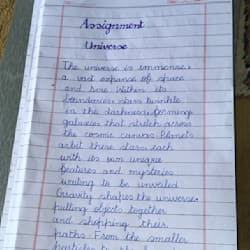 Assignment
Universe
The universe is immense
a vast expanse of space
and time within its
boundaries stars twinkle
in the darkness, forming
galaxies that stretch across
the cosmic canvas. Planets
orbit these stars, each
with its own unique
features and mysteries
waiting to be unveiled
Gravity shapes the universe.
pulling objects together
and shapping their
paths. From the smaller